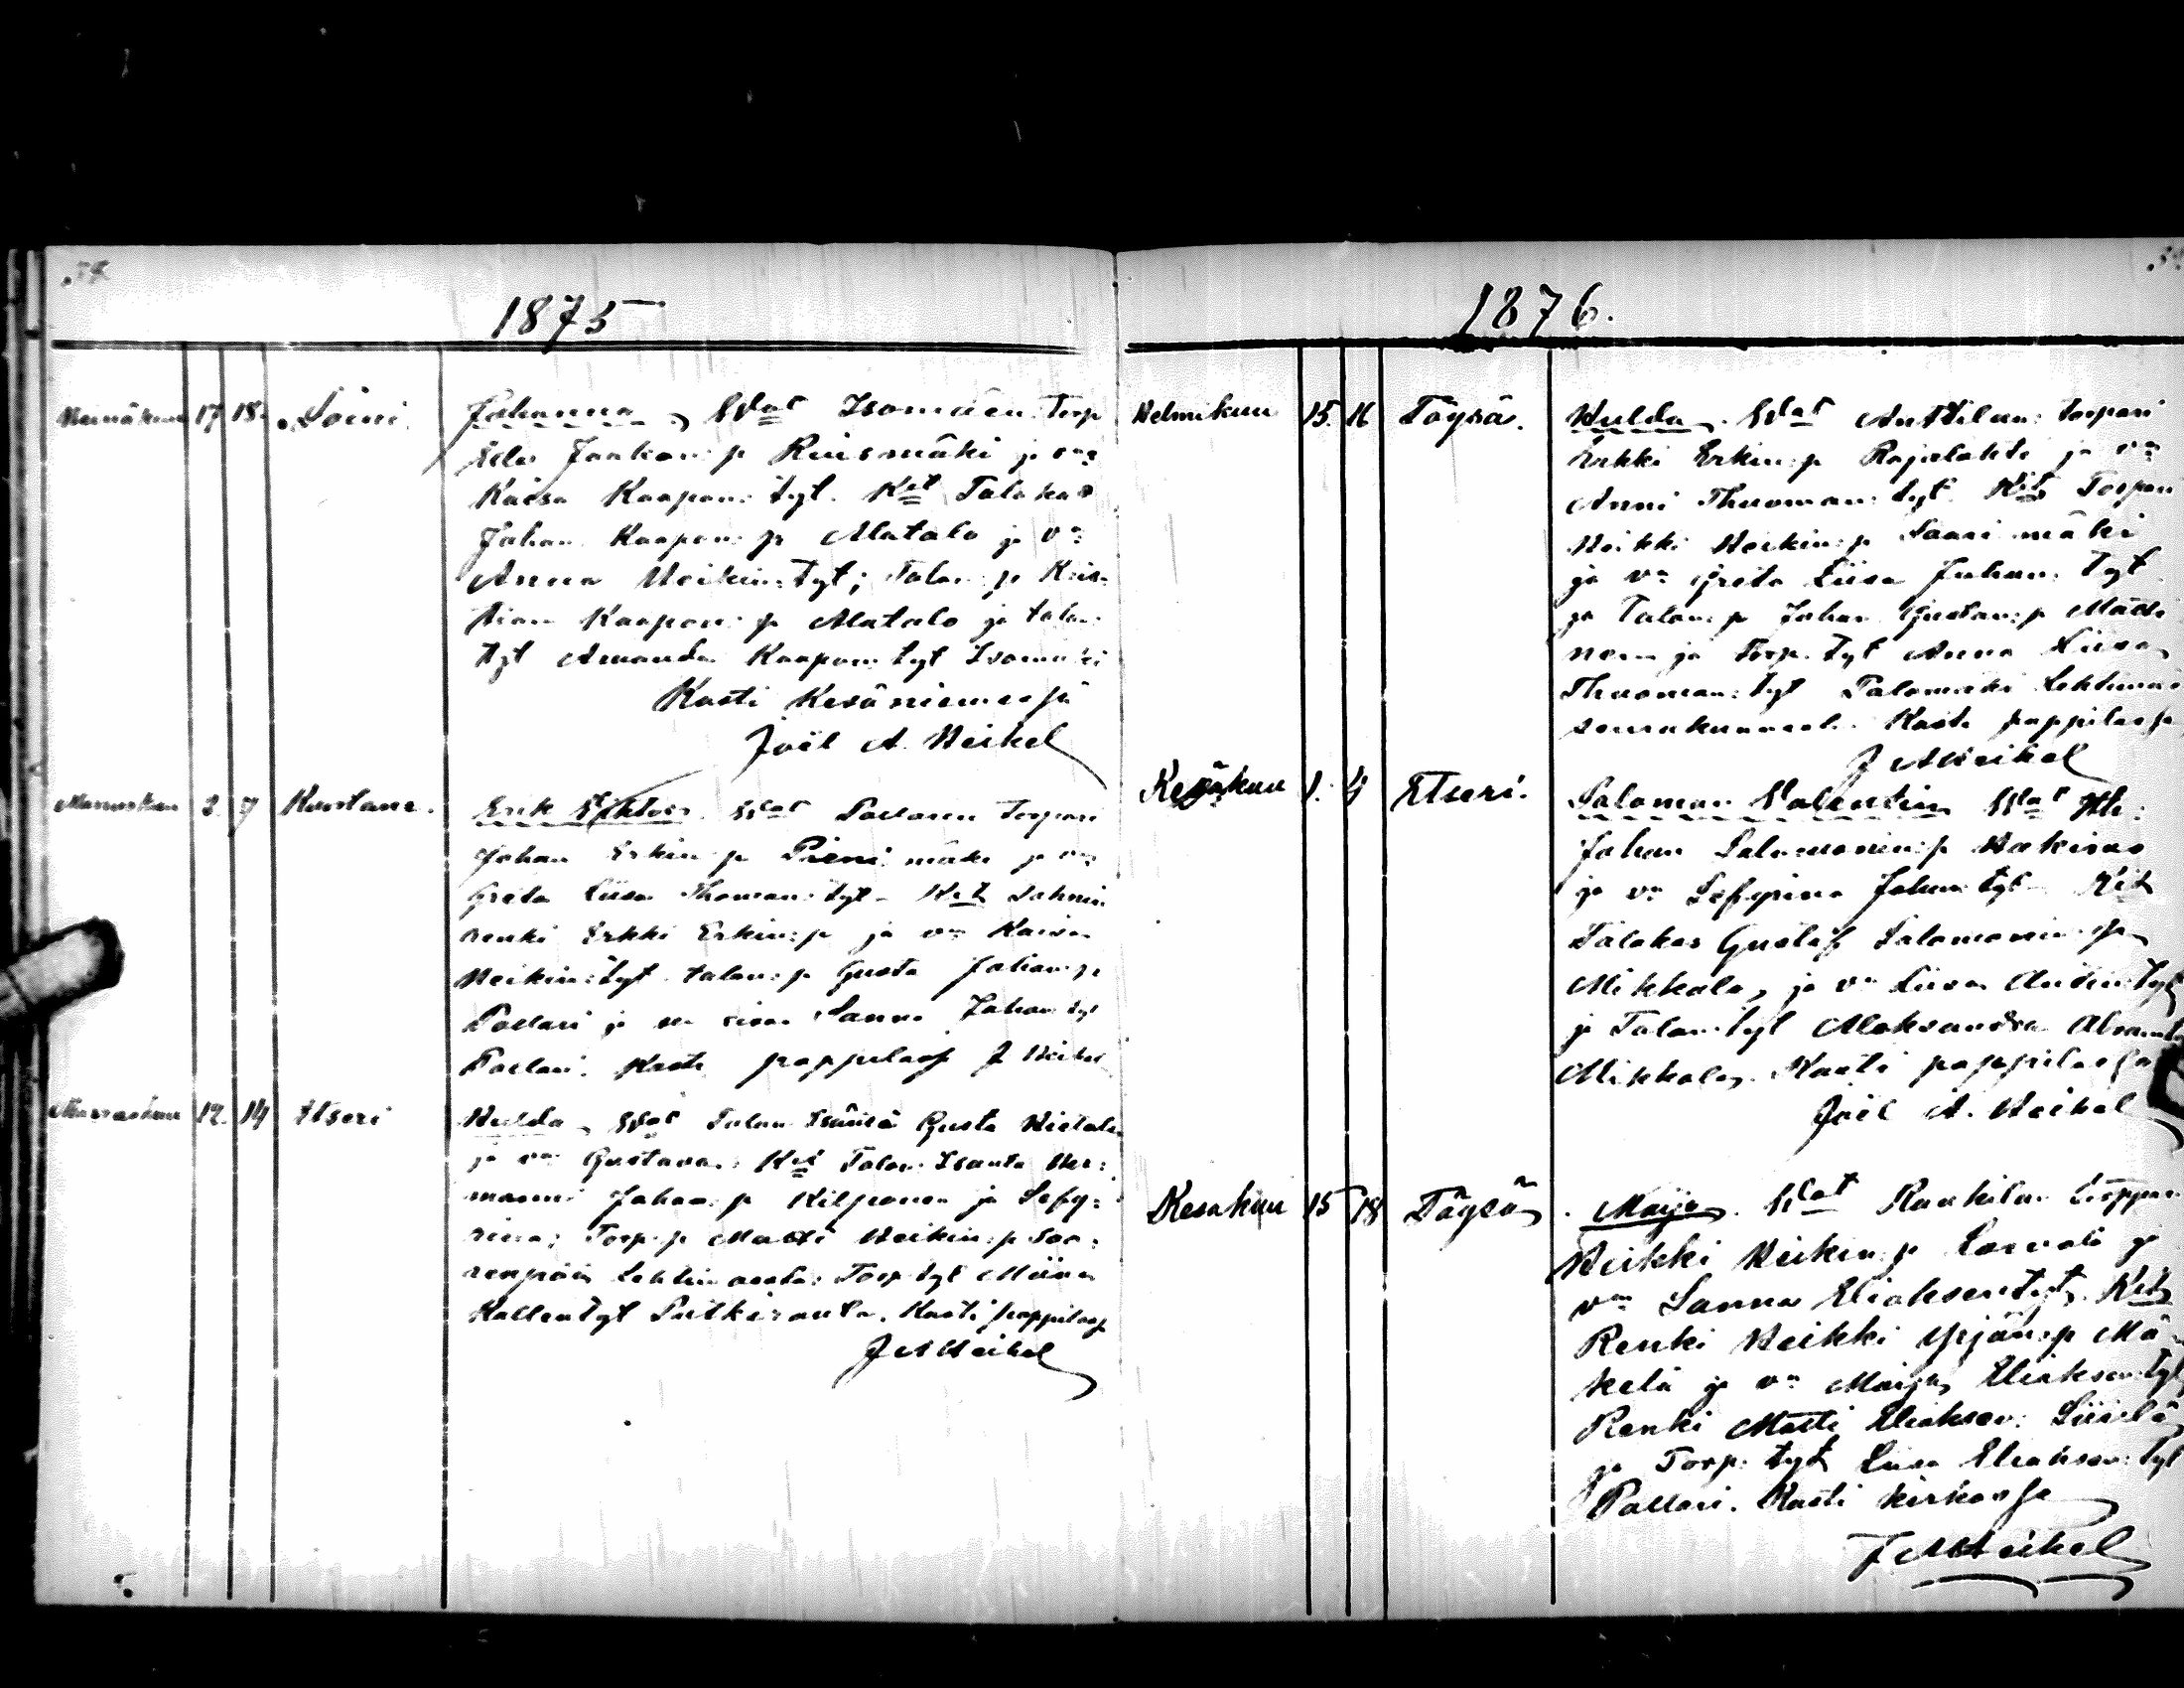 1875
Heinäkuu 17 18. Soini Johanna, Wat Isomäen Torp
Jaakon: p Ruismäki ja vmo
Kaisa Kaapon: tyt. Kit Talokas
Johan Kaapon: p Alatalo ja vo
Anna Heikin: tyt; Talon: p Kris-
tian Kaapon: p Alatalo ja talon:
tyt Amanda Kaapon: tyt Isomäki
Kasti Kesäniemessä
Joël A. Heikel
Marraskuu 3. 7 Kuortane. Erik Wat Pollarin torpari
Johan Erkin: p Pienimäki ja vmo
Greta Liisa Thoman: tyt - Kit
renki Erkki Erkin: p ja vmo Kaisa
Heikin: tyt. talon: p Gusta Johan: p
Pollari ja sen sisar Sanna Johan: tyt
Pollari. Kasti pappilassa J Heikel
Marraskuu 12. 14 Etseri Hulda, Wat Talon Isäntä Gusta Hietala
ja vmo Gustava. Kit Talon Isäntä Her:
manni Johan: p Kilponen ja Sefy:
rina; Torp: p Matti Heikin: p Saa:
renpää Torp: tyt Miina
Kallentyt Putkiranta. Kasti pappilassa
J A Heikel
1876.
Helmikuu 15. 16 Töysä. Hulda. Wat Anttilan: torpari
Erkki Erkin: p Rajalahti ja vmo
Anni Thuoman: tyt. Kit Torpari
Heikki Heikin: p Saarimäki
ja vo Greta Liisa Juhan: tyt
ja Talon: p Johan Gustan: p Mätti
nen ja Torp: tyt Anna Liisa
Thuoman: tyt Palomäki Lehtimäi
seurakunnasta. Kasti pappilassa
J A Heikel
Kesäkuu 1. 4 Etseri. Salomon Valentin Wat
Johan Salomonin: p Hakivuo
ja vo Sefyrina Johan: tyt - Kit
Talokas Gustaf Salomonin: p
Mikkola, ja vo Liisa Antin: tyt
ja Talon: tyt Aleksandra Abram:t
Mikkola. Kasti pappilassa
Joël A. Heikel
Kesäkuu 15 18 Töysä. Maija. Wat Rankilan torppari
Heikki Heikin: p ja
vmo Sanna Eliaksentyt. Kit
Renki Heikki Yrjän: p Mä-
kelä ja vo Maija Eliaksen: tyt
Renki Matti Eliaksen: Liisilä
ja Torp: tyt Liisa Eliaksen: tyt
Pollari. Kasti kirkossa
J A Heikel